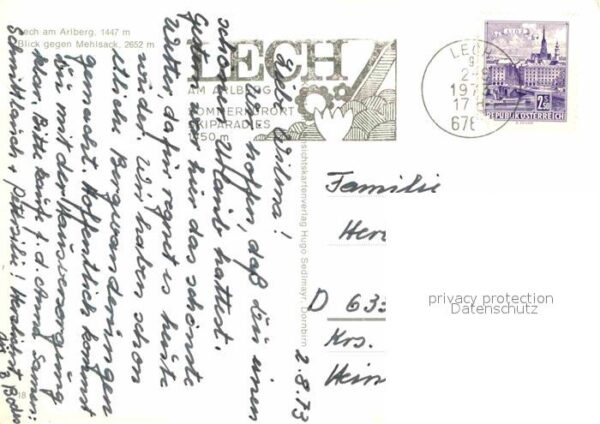 Lech am Arlberg, 1447 m
Blick gegen Mehlsack, 2652 m
LECH
AM ARLBERG
SOMMERKURORT
SKIPARADIES
1450 m
LECH
1973
17
676
LINZ
2.50
REPUBLIK ÖSTERREICH
2.8.73
wir hoffen, daß Du einen
schönen Urlaub hattest.
Gestern war hier das schönste
Wetter, dafür regnet es heute
wieder. Wir haben schon
etliche Bergwanderungen
gemacht. Hoffentlich kommst
Du mit der Hausversorgung
klar. Bitte kauf f. d. Samen:
Schnittlauch + Petersilie! Herzlichst
Ansichtskartenverlag Hugo Sedlmayr, Dornbirn
Familie
Her
D 633
Krs.
privacy protection
Datenschutz
18